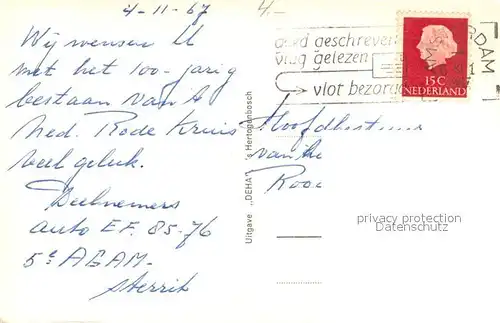 4-11-67
4.-
Wij wensen U
met het 100-jarig
bestaan van 't
Ned. Rode Kruis
veel geluk.
Deelnemers
auto EF. 85-76
5e AGAM-
Uitgave „DEHA" 's Hertogenbosch
goed geschreven
vlug gelezen
vlot bezorgd
DAM
15C
NEDERLAND
Hoofdbestuur
van he
Rooc
privacy protection
Datenschutz